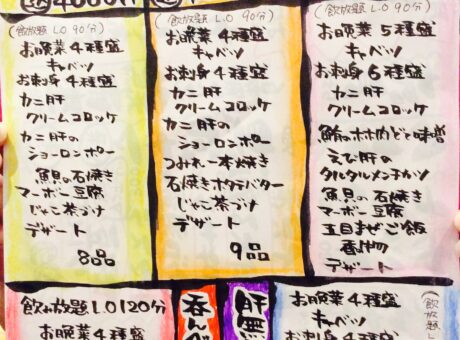 4000円
(飲放題 L.O 90分)
お晩菜4種盛
キャベツ
お刺身4種盛
カニ肝
クリームコロッケ
カニ肝の
ショーロンポー
魚貝の石焼き
マーボー豆腐
じゃこ茶づけ
デザート
8品
(飲放題 L.O 90分)
お晩菜4種盛
キャベツ
お刺身4種盛
カニ肝
クリームコロッケ
カニ肝の
ショーロンポー
つみれ一本焼き
石焼きホタテバター
じゃこ茶づけ
デザート
9品
(飲放題 L.O 90分)
お晩菜5種盛
キャベツ
お刺身6種盛
カニ肝
クリームコロッケ
鮪のホホ肉どて味噌
えび肝の
タルタルメンチカツ
魚貝の石焼き
マーボー豆腐
五目まぜご飯
香物
デザート
飲み放題L.O120分
お晩菜4種盛
呑ん
肝無
お晩菜4種盛
キャベツ
お刺身4種盛
(飲放題